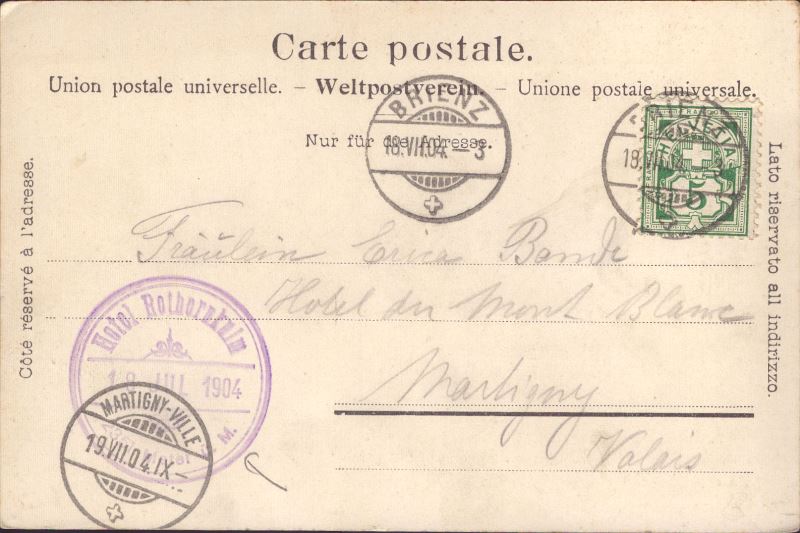 Carte postale.
Union postale universelle. – Weltpostverein. – Unione postale universale.
Nur für die Adresse.
BRIENZ
18.VII.04.–3
HELVETIA
5
Côté reservé à l'adresse.
Lato riservato all indirizzo.
Fräulein Erica
Hotel du Mont Blanc
Martigny
Valais
Hotel Rothornkulm
JUL 1904
M.
MARTIGNY-VILLE
19.VII.04.IX